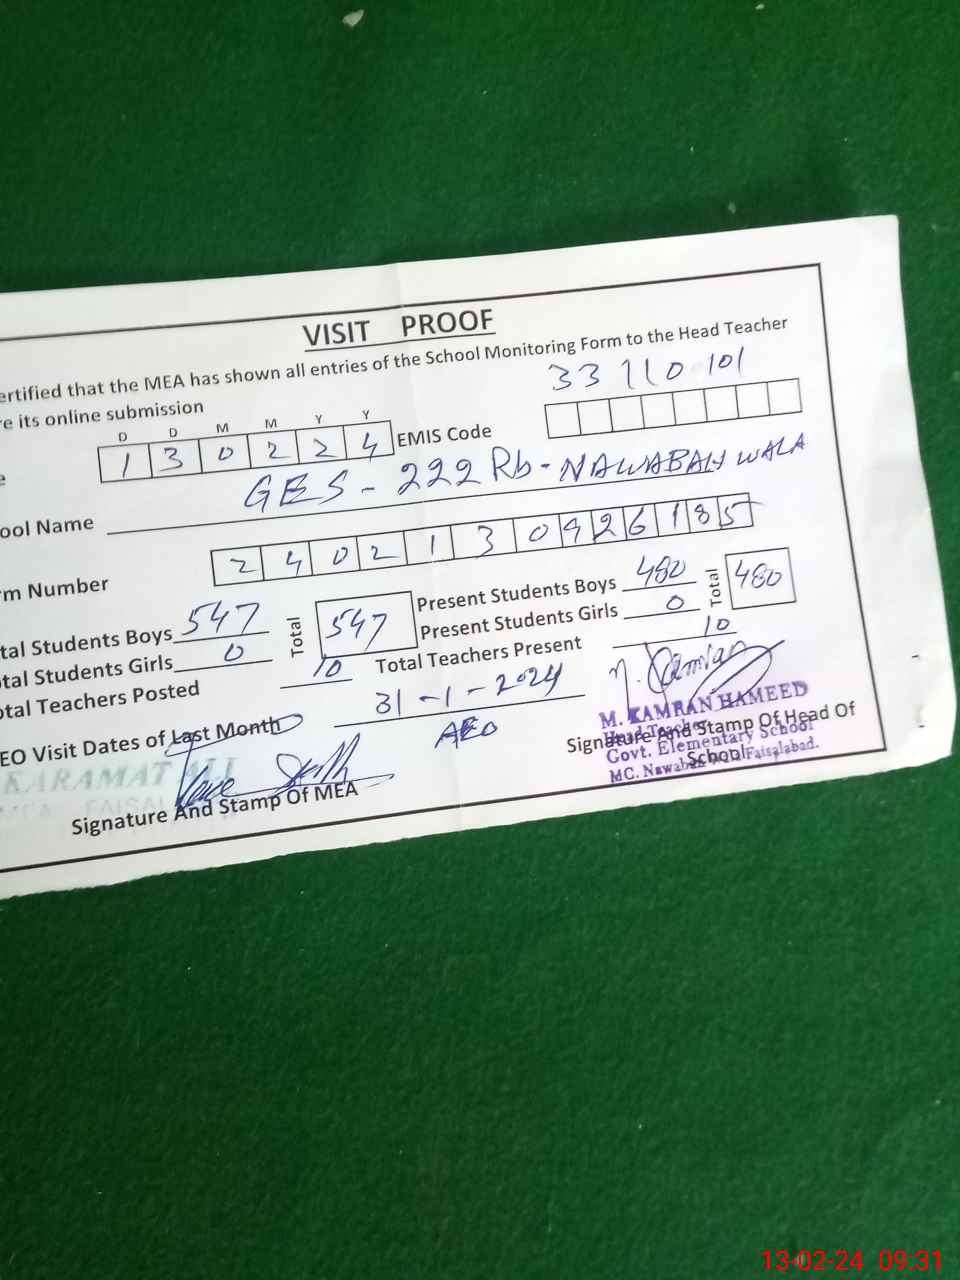 VISIT PROOF
ertified that the MEA has shown all entries of the School Monitoring Form to the Head Teacher
re its online submission
D D M M Y Y
e 1 3 0 2 2 4 EMIS Code 33110101
ool Name GES - 222 Rb - NAWABAH WALA
rm Number 2 4 0 2 1 3 0 9 26 1 8 5
tal Students Boys 547 Total 547 Present Students Boys 480 Total 480
otal Students Girls 0 Present Students Girls 0
otal Teachers Posted 10 Total Teachers Present 10
EO Visit Dates of Last Month 31-1-2024
AEO
M. KAMRAN HAMEED
Head Teacher
Govt. Elementary School
MC. Nawabah wala Faisalabad.
Signature And Stamp Of Head Of
School
KARAMAT ALI
MEA FAISAL
Signature And Stamp Of MEA
13-02-24 09:31